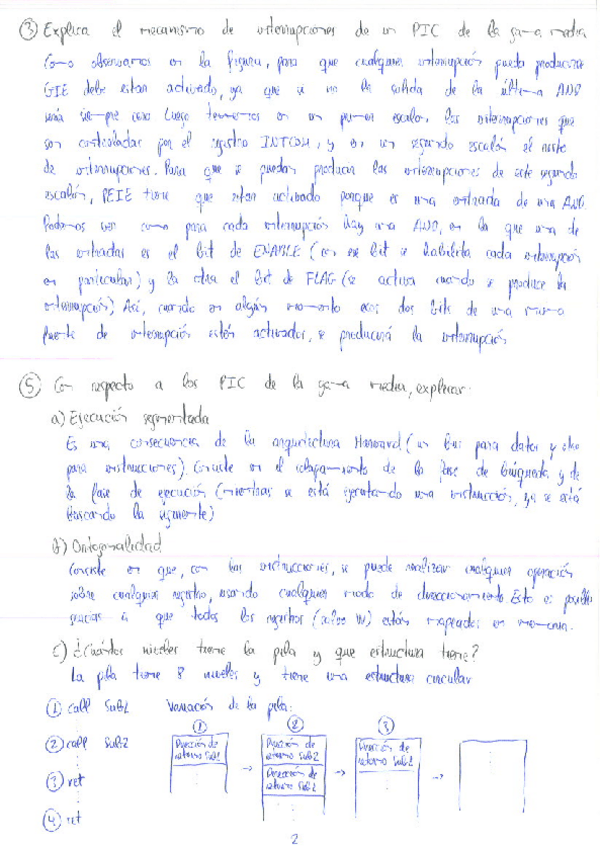 ③ Explica el mecanismo de interrupciones de un PIC de la gama media
Como observamos en la figura, para que cualquier interrupción pueda producirse
GIE debe estar activado, ya que si no la salida de la última AND
será siempre cero. Luego tenemos en un primer escalón, las interrupciones que
son controladas por el registro INTCON, y en un segundo escalón el resto
de interrupciones. Para que se puedan producir las interrupciones de este segundo
escalón, PEIE tiene que estar activado porque es una entrada de una AND.
Podemos ver como para cada interrupción hay una AND, en la que una de
las entradas es el bit de ENABLE (con ese bit se habilita cada interrupción
en particular) y la otra el bit de FLAG (se activa cuando se produce la
interrupción) Así, cuando en algún momento esos dos bits de una misma
fuente de interrupción estén activados, se producirá la interrupción
⑤ Con respecto a los PIC de la gama media, explicar:
a) Ejecución segmentada
Es una consecuencia de la arquitectura Harvard (un bus para datos y otro
para instrucciones) Consiste en el solapamiento de la fase de búsqueda y de
la fase de ejecución (mientras se está ejecutando una instrucción, ya se está
buscando la siguiente)
b) Ortogonalidad
Consiste en que, con las instrucciones, se puede realizar cualquier operación
sobre cualquier registro, usando cualquier modo de direccionamiento. Esto es posible
gracias a que todos los registros (salvo W) están mapeados en memoria.
c) ¿Cuántos niveles tiene la pila y que estructura tiene?
La pila tiene 8 niveles y tiene una estructura circular
① call Sub1 Variación de la pila:
① ② ③
② call Sub2
Dirección de retorno Sub1 → Dirección de retorno Sub2 → Dirección de retorno Sub1 →
Dirección de retorno Sub1
③ ret
④ ret
2